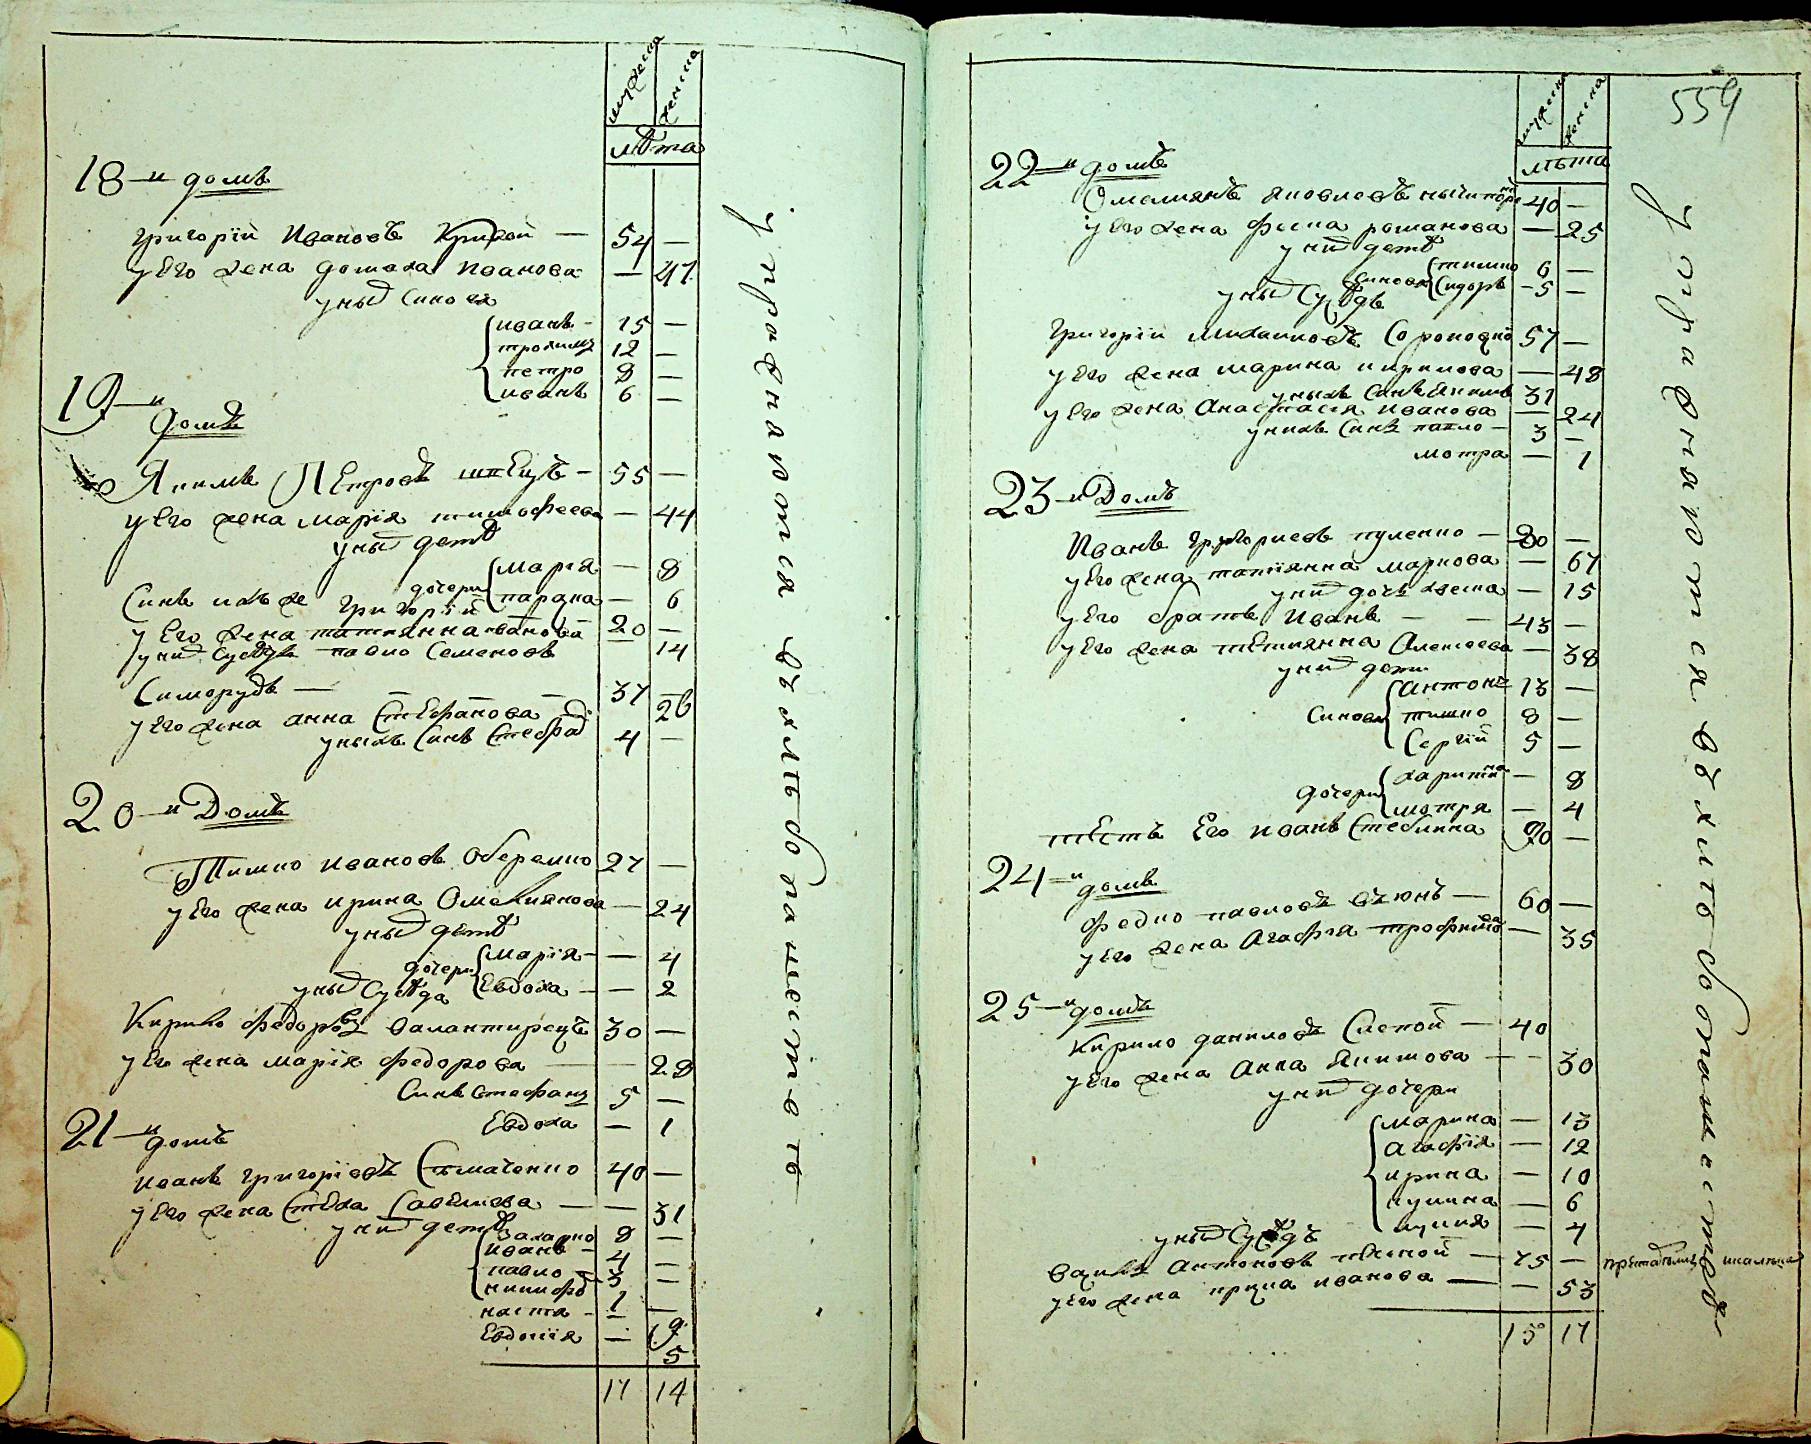 мужеска
женска
лѣта
18-и домъ
Григорій Ивановъ Кривой — 54 —
у Его жена домаха Иванова — 47
уныѣ Синовя
иванъ - 15 —
трохимъ 12 —
петро 8 —
иванъ 6 —
19-и
домъ
Якимъ ПЕтровъ шпЕцъ - 55 —
у Его жена марія тимофеева — 44
уныѣ детѣ
дочери марія — 8
параска — 6
Синъ ихъ же Григорій 20 —
у Его жена татиянна иванова 14
униѣ Сусѣдъ павло Семеновъ
Симорудъ — — — 37
у Его жена анна СтЕфанова 26
уныхъ Синъ Стефан 4 —
20-и Домъ
Тишко Ивановъ Оберемко 27 —
у Его жена ирина Омелиянова — 24
уныѣ детѣ
дочери марія — — 4
Евдоха — — 2
уныѣ Сусѣда
Кирило Федоровъ валантирецъ 30 —
у Его жена марія федорова — 28
Синъ стефанъ 5 —
Евдоха — 1
21-и домъ
иванъ григоріевъ 40 —
у Его жена СтЕха СавЕлиева — — 31
униѣ детѣ
Захарко 8 —
иванъ - 4 —
павло — 3 —
никифоръ
наста - 1 —
Евдокія — 9
5
17 14
упражняются въ хлѣбопашествѣ
559
мужеска
женска
лѣта
22-и домъ
Омелиянъ яковлевъ 40 —
у Его жена феска романова — 25
униѣ детѣ
Синовя тишко 6 —
Сидоръ - 5 —
уныѣ Сусѣдъ
Григорій Михаиловъ 57 —
у Его жена марина кирилова — 48
уныхъ Синъ Якимъ 31
у Его жена Анастасія иванова — 24
унихъ Синъ павло — 3 —
мотра — 1
23-и Домъ
Иванъ Григориевъ куленко — 80 —
у Его жена татіянна маркова — 67
униѣ дочъ хвеска — 15
у Его братъ Иванъ — — 43 —
у Его жена тЕтиянна Алексеева — 38
униѣ дети
Синовя антонъ 13 —
тишко 8 —
Сергій 5 —
дочери харитина — 8
мотря — 4
тЕсть Его иванъ Стеблина 90 —
24-и
домъ
Федко павловъ вюнъ — 60 —
у Его жена Агафія трофимова — 35
25-и домъ
Кирило даниловъ Слепой — 40
у Его жена Анна Якимова — — 30
униѣ дочери
марина — 13
агафія — 12
ирина — 10
кулина — 6
лукия — 4
уныѣ Сусѣдъ
антоновъ — 75 —
у Его жена иванова — — 53
15 17
упражняются въ хлѣбопашествѣ